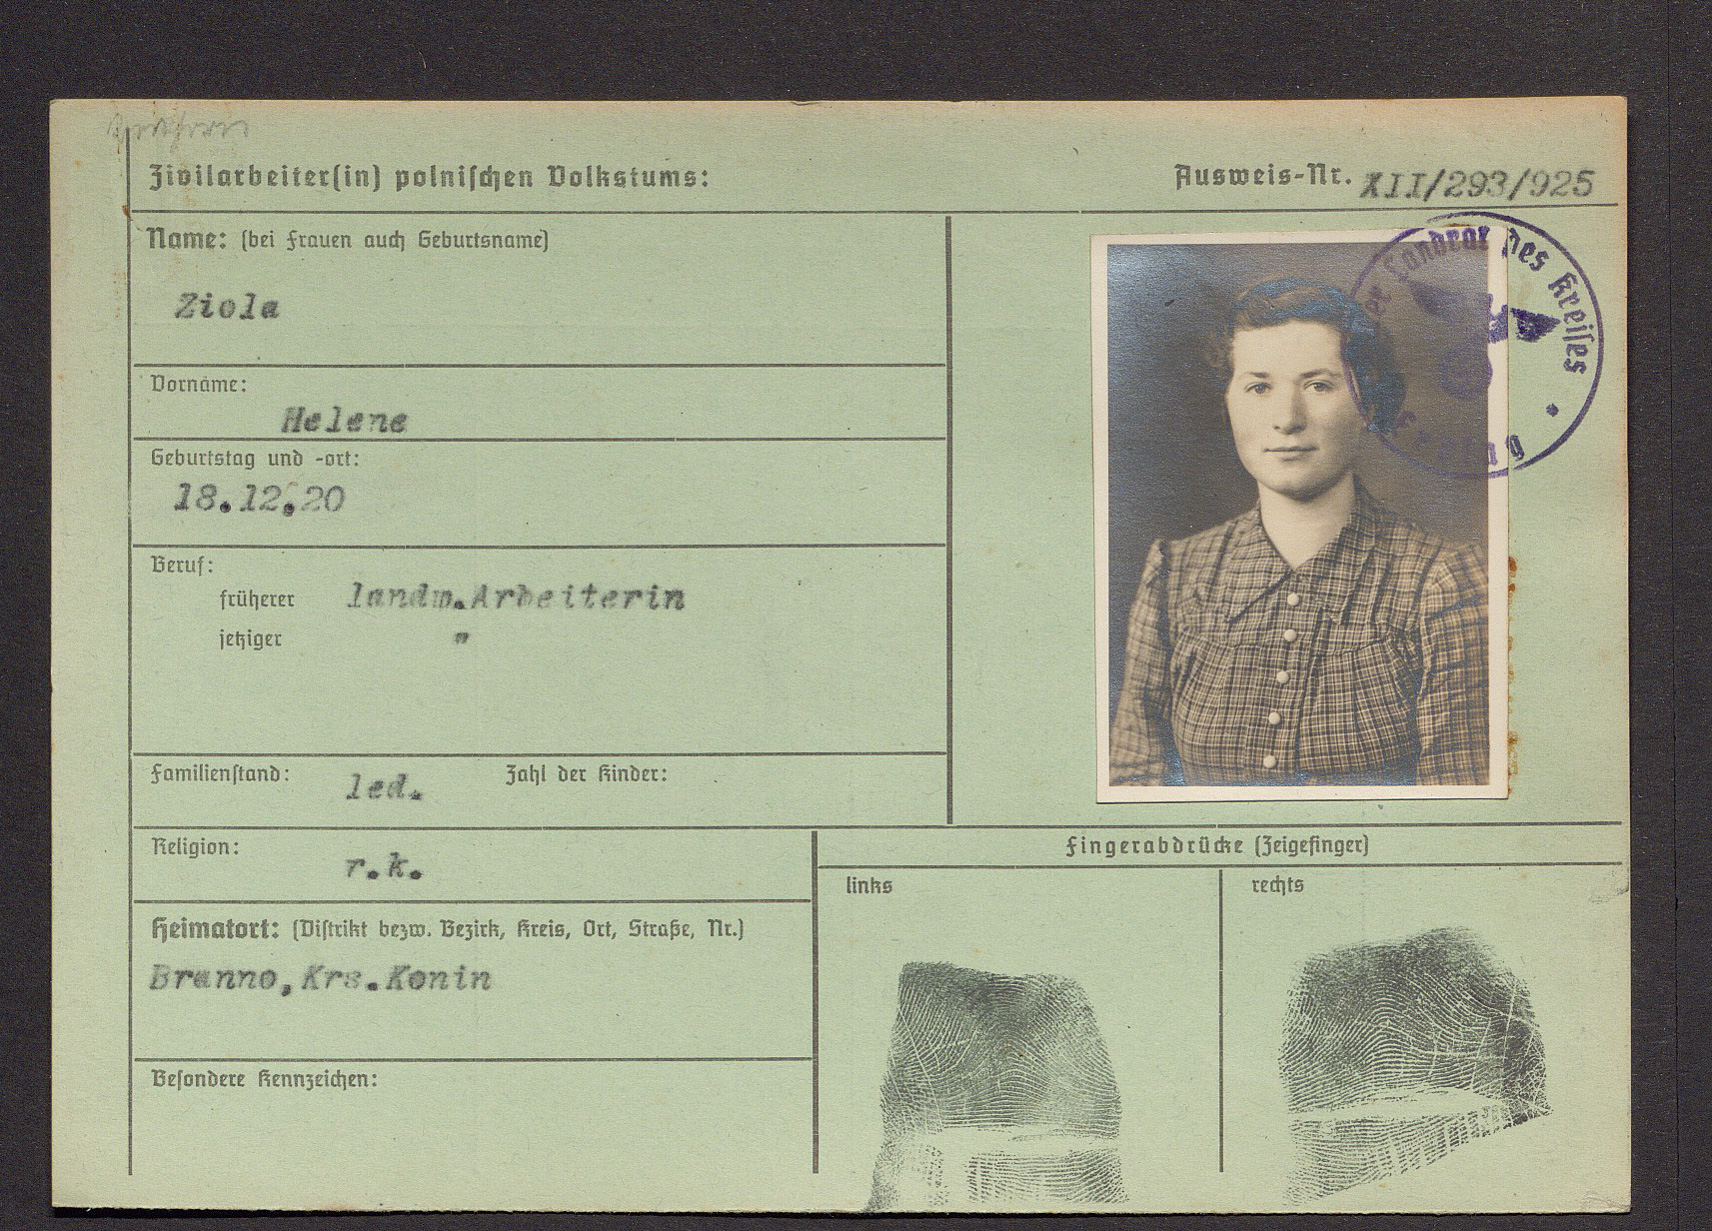 Zivilarbeiter(in) polnischen Volkstums:
Ausweis-Nr. XII/293/925
Name: (bei Frauen auch Geburtsname)
Ziola
Vorname:
Helene
Geburtstag und -ort:
18.12.20
Beruf:
früherer landw.Arbeiterin
jetziger "
Familienstand: led. Zahl der Kinder:
Religion: r.k.
Heimatort: (Distrikt bezw. Bezirk, Kreis, Ort, Straße, Nr.)
Branno, Krs.Konin
Besondere Kennzeichen:
Landrat des Kreises
Fingerabdrücke (Zeigefinger)
links
rechts